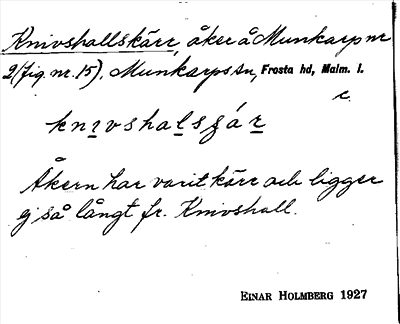 Knivshallskärr, åker å Munkarp nr
2 (fig. nr. 15). Munkarps sn, Frosta hd, Malm. l.
c.
Åkern har varit kärr och ligger
ej så långt fr. Knivshall.
EINAR HOLMBERG 1927